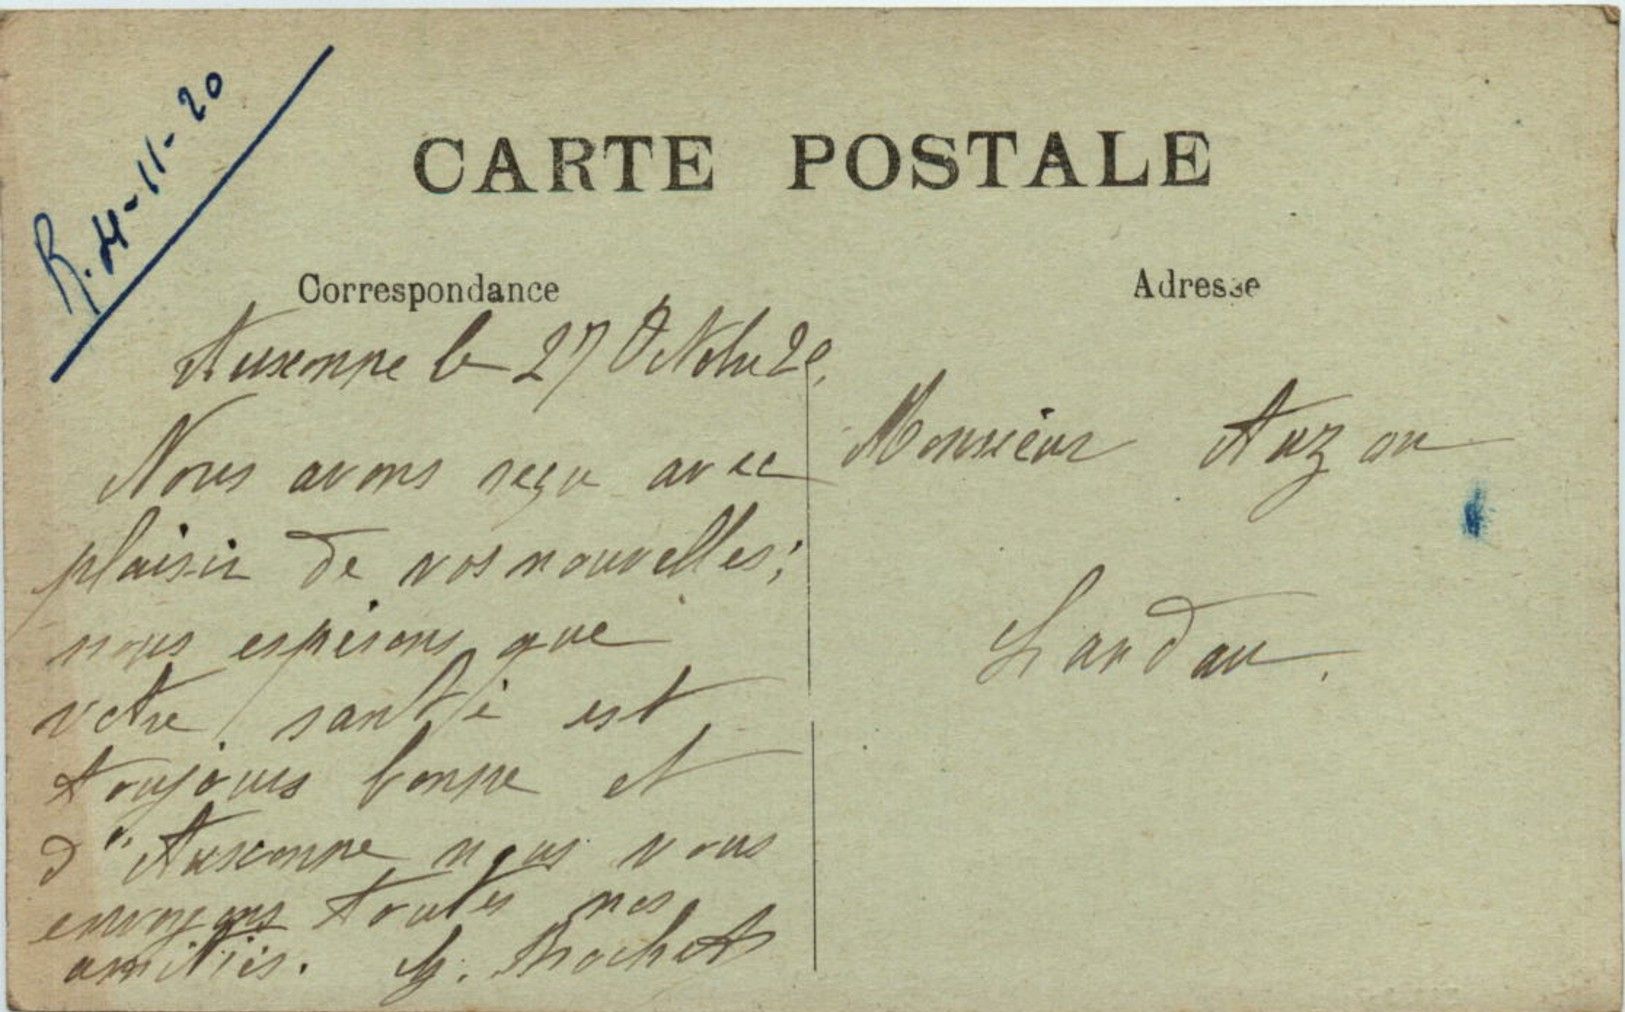 R. 4-11-20
CARTE POSTALE
Correspondance
Adresse
Auxonne le 27 Octobre 20.
Nous avons reçu avec
plaisir de vos nouvelles;
nous espérons que
votre santé est
toujours bonne et
d'Auxonne nous vous
envoyons toutes nos
amitiés. G. Brochet
Monsieur Auzou
Landau.